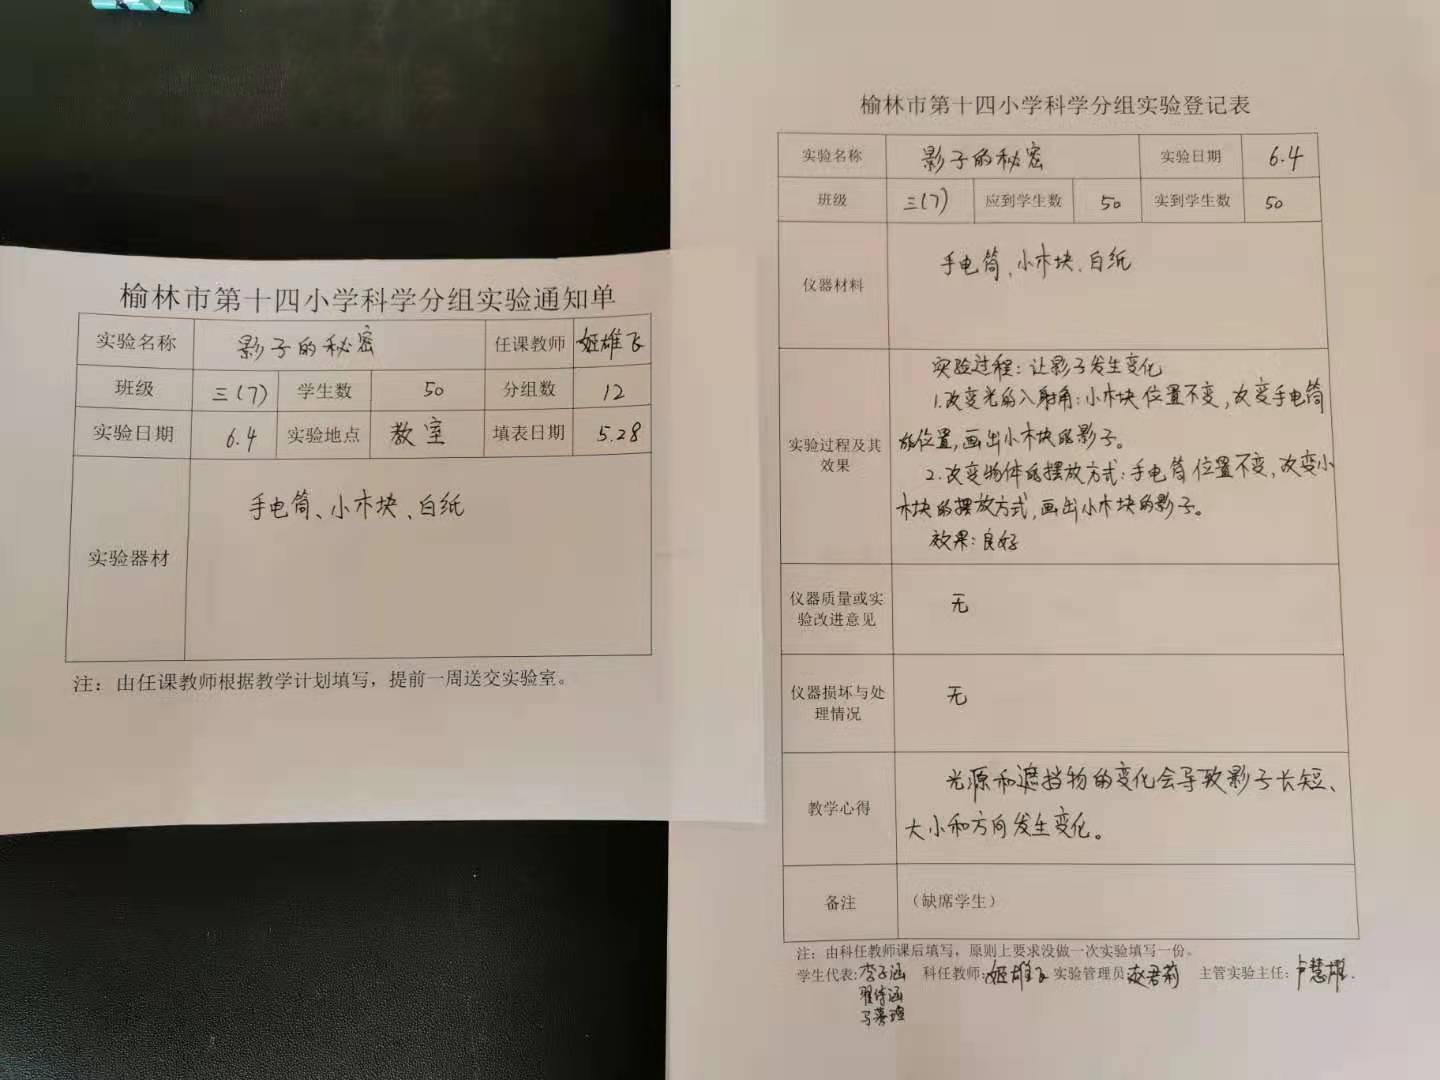 榆林市第十四小学科学分组实验通知单
实验名称 影子的秘密 任课教师 姬雄飞
班级 三(7) 学生数 50 分组数 12
实验日期 6.4 实验地点 教室 填表日期 5.28
实验器材 手电筒、小木块、白纸
注：由任课教师根据教学计划填写，提前一周送交实验室。
榆林市第十四小学科学分组实验登记表
实验名称 影子的秘密 实验日期 6.4
班级 三(7) 应到学生数 50 实到学生数 50
仪器材料 手电筒、小木块、白纸
实验过程及其
效果
实验过程：让影子发生变化
1.改变光的入射角：小木块位置不变，改变手电筒
的位置，画出小木块的影子。
2.改变物体的摆放方式：手电筒位置不变，改变小
木块的摆放方式，画出小木块的影子。
效果：良好
仪器质量或实
验改进意见
无
仪器损坏与处
理情况
无
教学心得
光源和遮挡物的变化会导致影子长短、
大小和方向发生变化。
备注 （缺席学生）
注：由科任教师课后填写，原则上要求没做一次实验填写一份。
学生代表：李子涵 科任教师：姬雄飞 实验管理员 赵君莉 主管实验主任：卢慧雄.